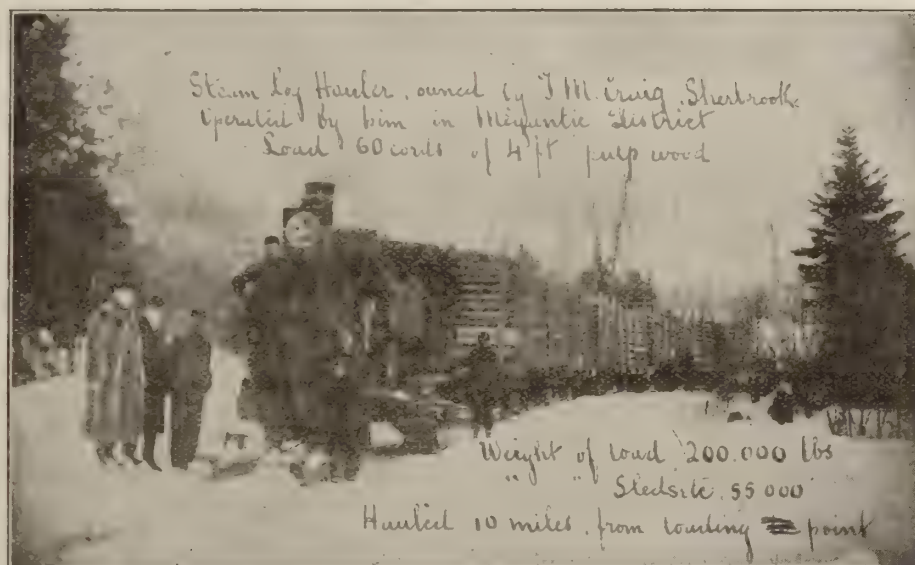 Steam Log Hauler, owned by T M. Craig, Sherbrook.
Operated by him in Megantic District
Load 60 cords of 4 ft pulp wood
Weight of load 200.000 lbs
" " Sleds etc. 55 000
Hauled 10 miles, from loading point